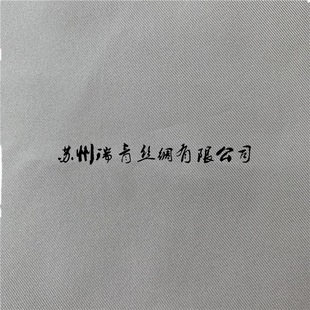 苏州瑞青丝绸有限公司